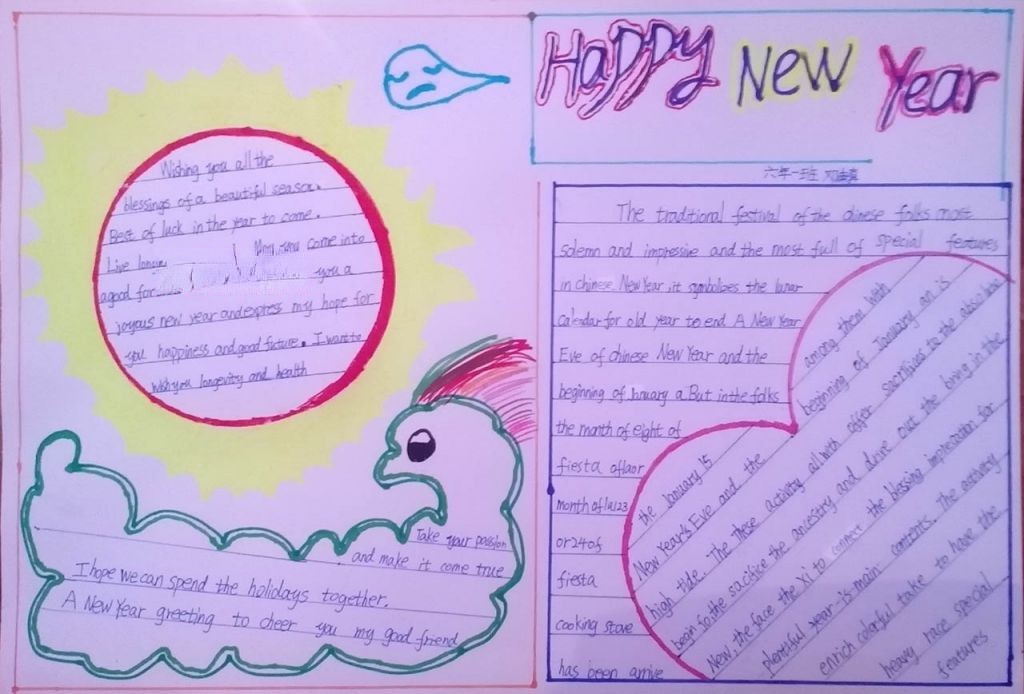 Happy New Year
六年一班
Wishing you all the
blessings of a beautiful season.
Best of luck in the year to come.
Live longe May you come into
a good for you a
joyous new year and express my hope for
you happiness and good future. I want to
wish you longevity and health
Take your passion
and make it come true
I hope we can spend the holidays together.
A New Year greeting to cheer you my good friend
The traditional festival of the chinese folks most
solemn and impressive and the most full of special features
in chinese New Year, it symbolizes the lunar
calendar for old year to end A New Year
Eve of chinese New Year and the
beginning of January a But in the folks
the month of eight of
fiesta oflaor
month of la123
or 24 of
fiesta
cooking stove
has been arrive
among them with
beginning of January an is
the January 15 offfer sacrifices to the
New Year's Eve and the all with drive out the bring in the
high tide. The These activity ancestry and the blessing imprecation for
begin fo the sacrifice the connect contents. The activity
New, the face the Xi to main take to have the
plentiful year is
enrich colorful race special
heavy features